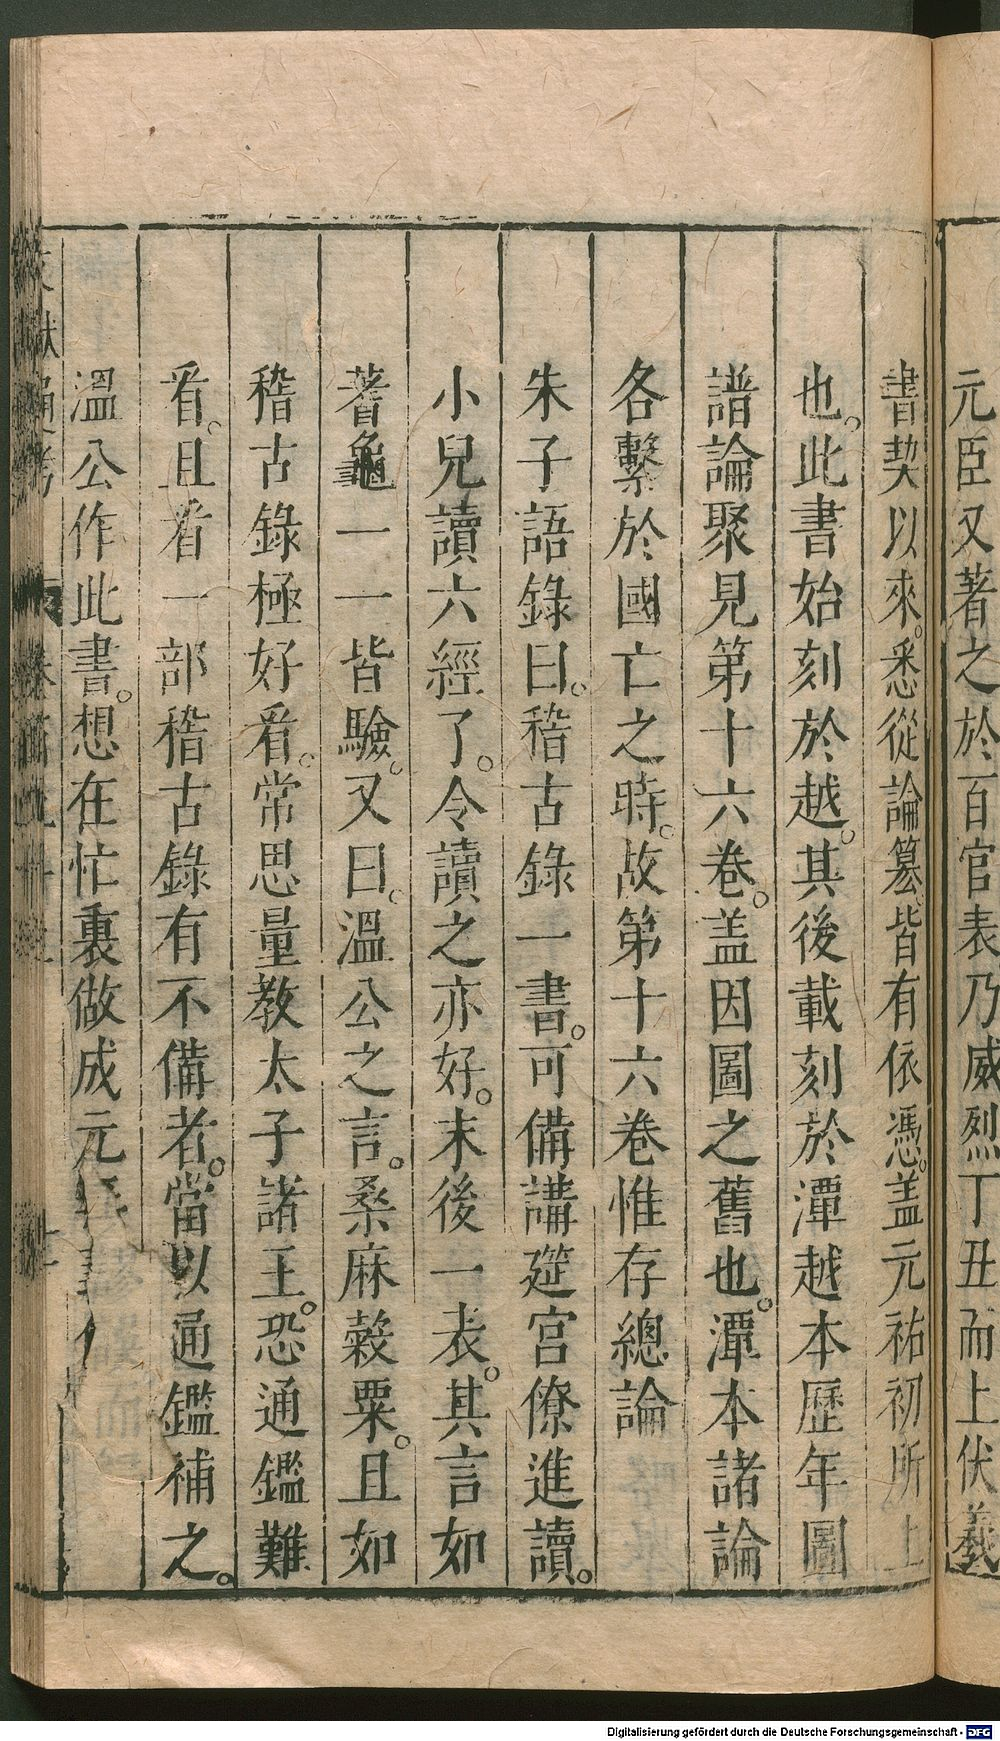 元臣又著之於百官表乃威烈丁丑而上伏羲
書契以來。悉從論纂。皆有依憑。盖元祐初所上
也。此書始刻於越。其後載刻於潭越本歷年圖
譜論聚見第十六卷。盖因圖之舊也。潭本諸論
各繫於國亡之時。故第十六卷惟存總論
朱子語錄曰。稽古錄一書。可備講筵宮僚進讀。
小兒讀六經了。令讀之亦好。末後一表。其言如
蓍龜一一皆驗。又曰。溫公之言。桑麻穀粟。且如
稽古錄極好看。常思量教太子諸王。恐通鑑難
看。且看一部稽古錄有不備者。當以通鑑補之。
溫公作此書。想在忙裏做成元
Digitalisierung gefördert durch die Deutsche Forschungsgemeinschaft - DFG